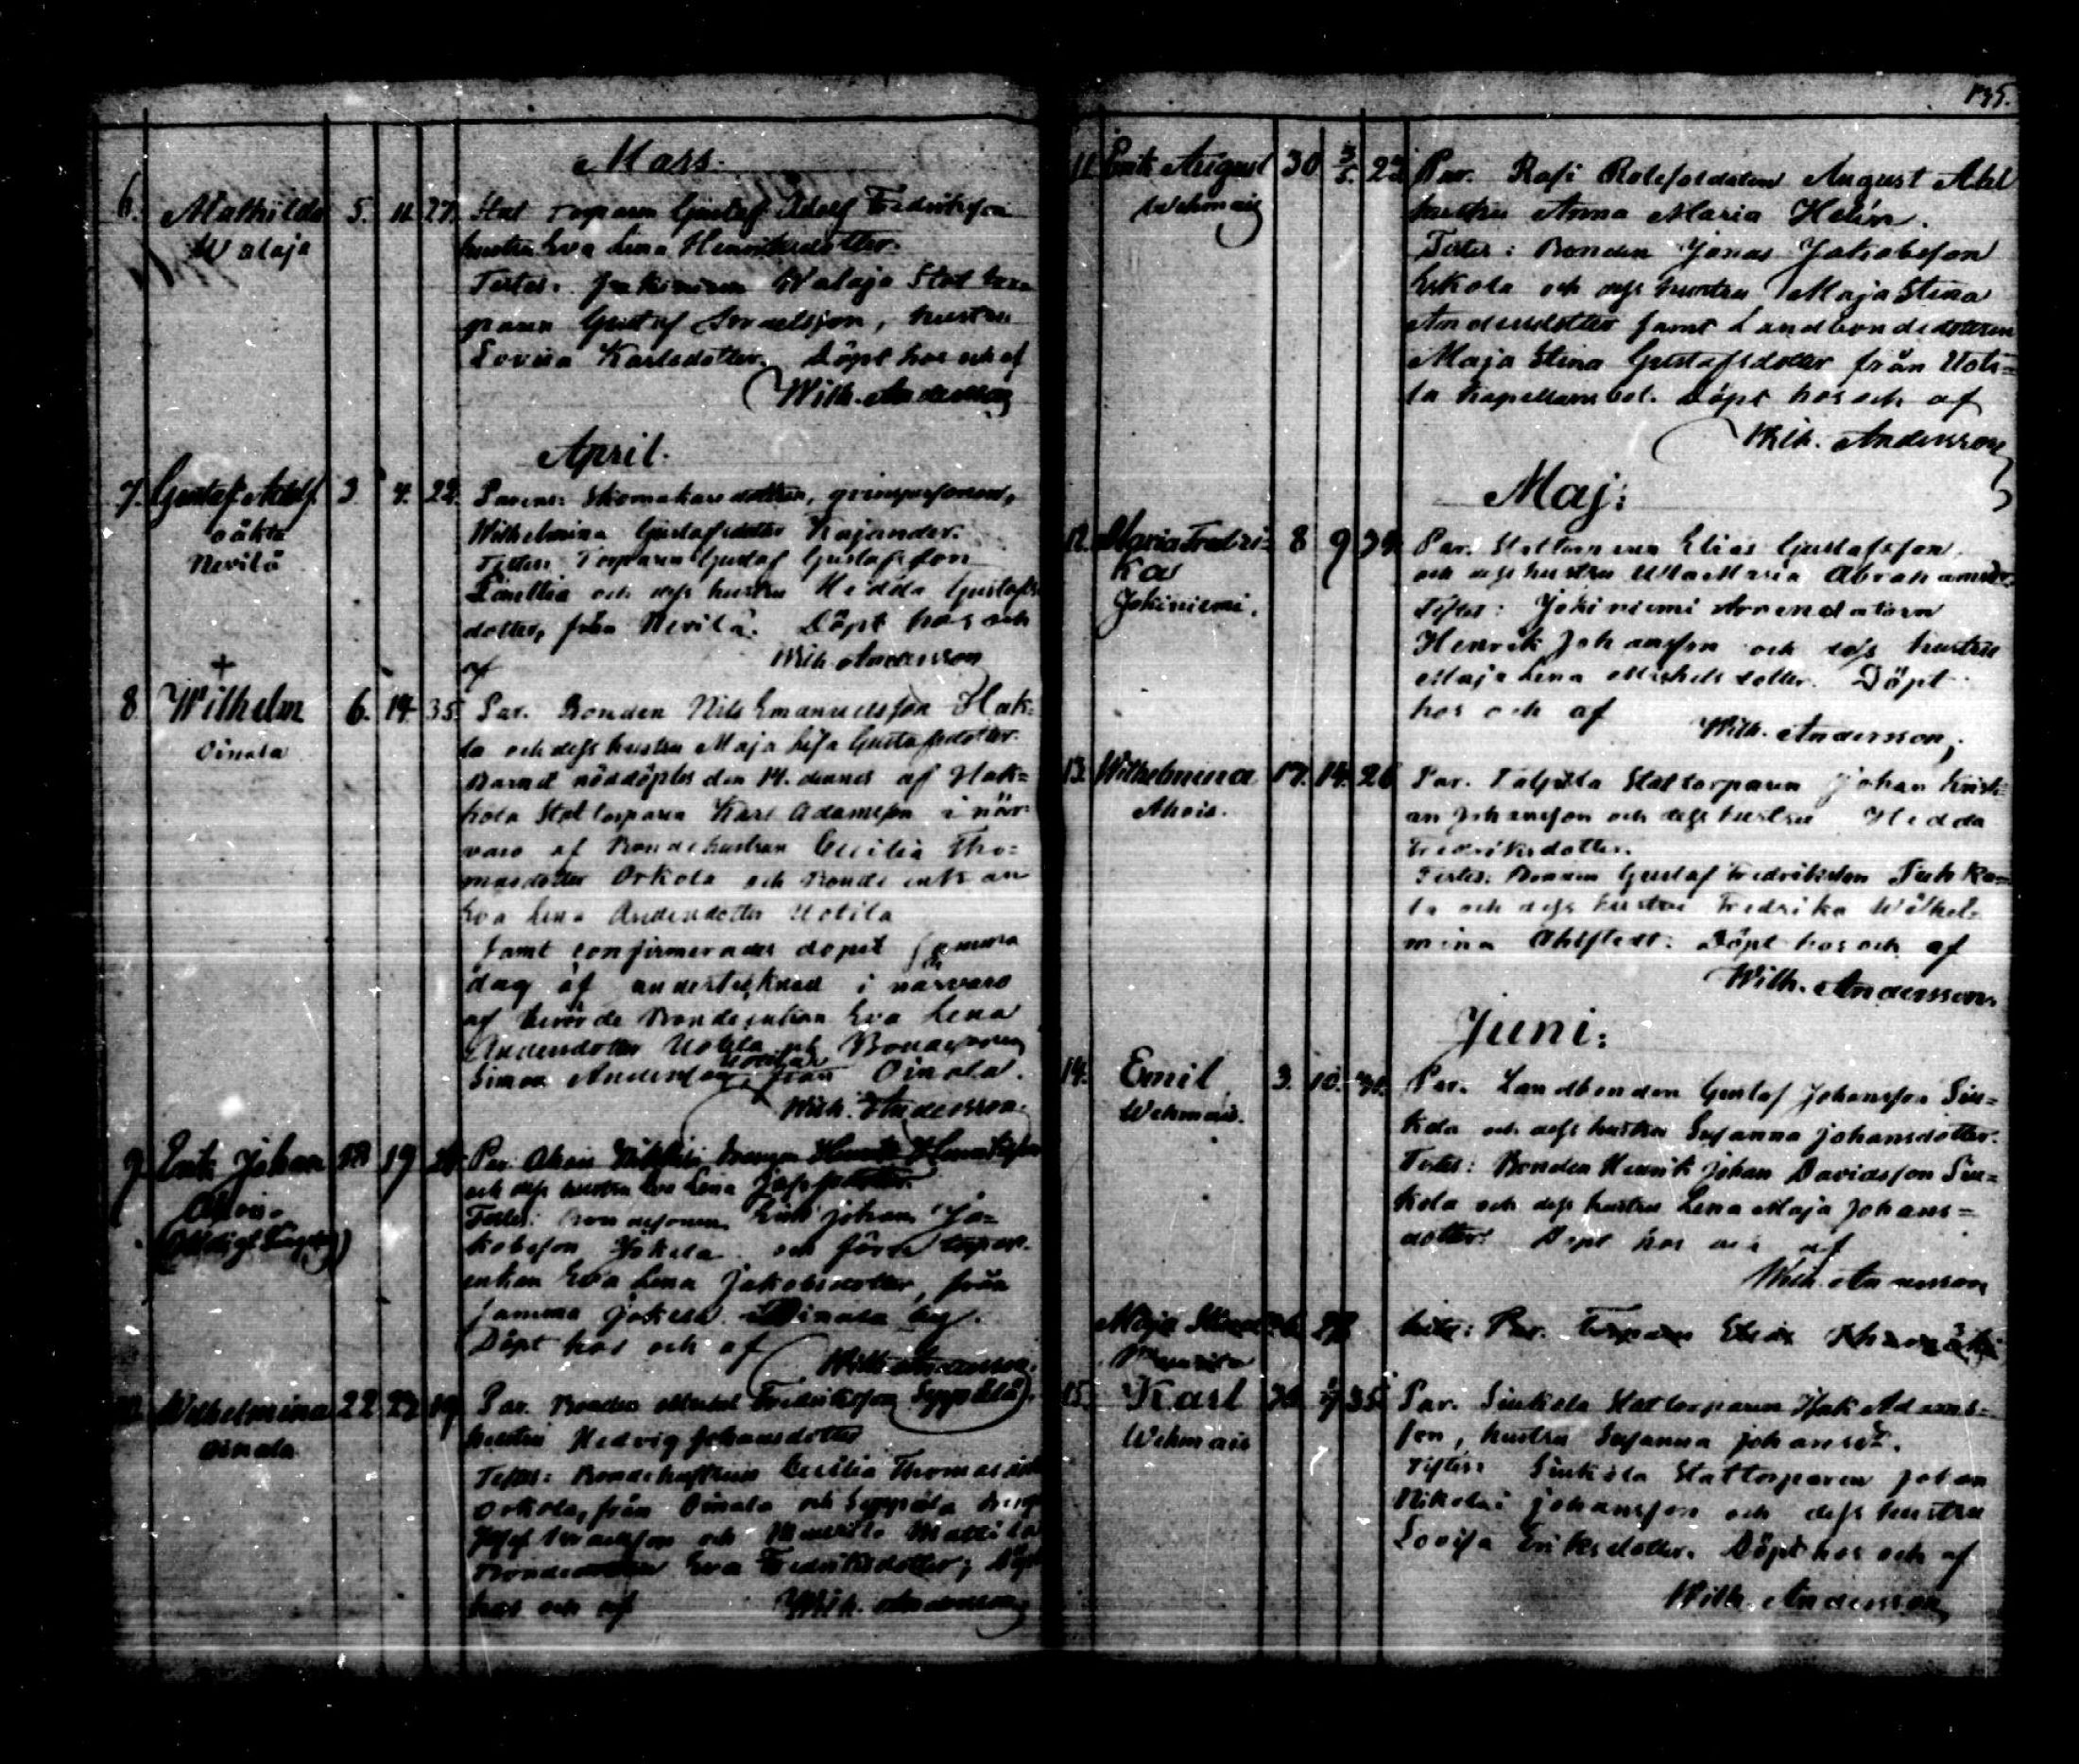 Mars.
6. Mathilda 5. 11. 27. Stat Torparen Gustaf Adolf Fredriksson
Walaja hustru Eva Lena Henriksdotter.
Testes: Walaja Stat tor-
paren Gustaf Israelsson, hustru
Lovisa Karlsdotter. Döpt hos och af
Wilh. Andersson
April.
7. Gustaf Adolf 3 4. 22. Parens: Skomakare dottren,
oäkta Wilhelmina Gustafsdotter Kajander.
Nevilä Testes: Torparen Gustaf Gustafsson
och dess hustru Hedda Gustafs
dotter, från Nevilä. Döpt hos och
af Wilh. Andersson
+
8 Wilhelm 6. 14. 35. Par. Bonden Nils Emanuelsson Hak-
Oinala la och dess hustru Maja Lisa Gustafsdotter.
Barnet nöddöptes den 14. dennes af Hak-
kola Stattorparen Karl Adamsson i när-
varo af Bondehustrun Cecilia Tho-
masdotter Orkola och Bonde enkan
Eva Lena Andersdotter Uotila
samt confirmerades dopet samma
dag af undertecknad i närvaro
af berörde Bondeenkan Eva Lena
Andersdotter Uotila och Bondesonen
Simon Andersson Uotila från Oinala.
Wilh. Andersson.
9. Erik Johan 18 19 Par. Ahois Bonden Henrik Henriksson
Ahois. och dess hustru Eva Lena
Testes: Bondesonen Erik Johan Ja-
kobsson Jokela och förre
enkan Eva Lena Jakobsdotter, från
samma Jokela Oinala by.
Döpt hos och af Wilh. Andersson.
10. Wilhelmina 22 23 19 Par. Bonden Michel Fredriksson Seppälä,
Oinala hustru Hedvig Johansdotter
Testes: Bondehustrun Cecilia Thomasdotter
Orkola, från Oinala och Seppälä
Josef Israelsson och Mattila
Eva Fredriksdotter; Döpt
hos och af Wilh. Andersson
135.
11 Erik August 30 3/5. 22 Par. Rasi Rotesoldaten August Abel
Wehmais hustru Anna Maria Helin.
Testes: Bonden Jonas Jakobsson
Eskola och dess hustru Maja Stina
Andersdotter samt Landbondedottren
Maja Stina Gustafsdotter från Uoti-
la Kapellansbol. Döpt hos och af
Wilh. Andersson
Maj:
12. Maria Fredri- 8 9 34. Par. Stattorparen Elias Gustafsson
ka och dess hustru Ulla Maria Abrahamsdr.
Jokiniemi. Testes: Jokiniemi Arrendatorn
Henrik Johansson och dess hustru
Maja Lena Michelsdotter. Döpt
hos och af Wilh. Andersson,
13. Wilhelmina 17. 14. 26 Par. Stattorparen Johan Kristi-
Ahois. an Johansson och dess hustru Hedda
Fredriksdotter.
Testes: Bonden Gustaf Fredriksson
la och dess hustru Fredrika Wilhel-
mina Ahlstedt. Döpt hos och af
Wilh. Andersson.
Juni:
14. Emil 3. 10. 30. Par. Landbonden Gustaf Johansson Siu-
Wehmais. kola och dess hustru Susanna Johansdotter.
Testes: Bonden Henrik Johan Davidsson Siu-
kola och dess hustru Lena Maja Johans-
dotter. Döpt hos och af
Wilh. Andersson
Maja Stina Par. Torparen Elias
15. Karl 35 Par. Siukola Stattorparen Isak Adams-
Wehmais son, hustru Susanna Johansdr.
Testes: Siukola Stattorparen Johan
Nikolai Johansson och dess hustru
Lovisa Eriksdotter. Döpt hos och af
Wilh. Andersson